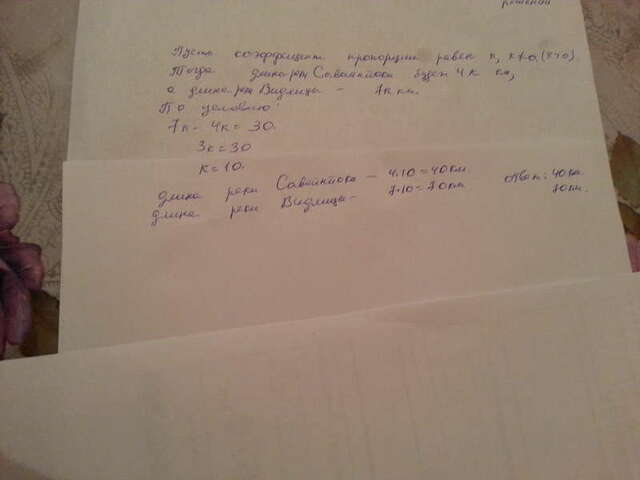 решении
Пусть коэффициент пропорции равен к, к≠0. (к>0)
Тогда длина реки Савайнйоки будет 4к км,
а длина реки Видлицы - 7к км.
По условию:
7к - 4к = 30.
3к = 30
к = 10.
длина реки Савайнйоки - 4·10 = 40 км. Ответ: 40 км
длина реки Видлицы - 7·10 = 70 км 70 км.